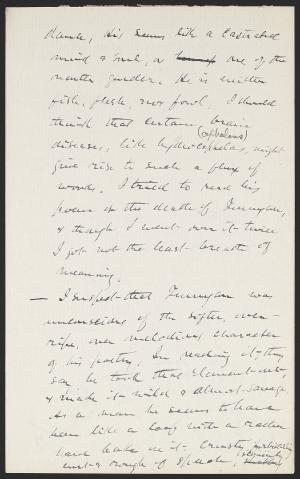 thanks, his seems like a castrated
mind & such, a one of the
neuter gender. He is neither
fish, flesh, nor fowl. I should
think that certain brain
(cephalous)
diseases, like hydrocephalus, might
give rise to such a flux of
words. I tried to read his
poem on the death of Tennyson,
& though I went over it twice
I got not the least breath of
meaning.
— I suspect that Tennyson was
unconscious of the softer, over-
ripe, over melodious character
of his poetry. In reading it they
say he took that element out,
& made it wild & almost savage
As a man he seems to have
been like a loaf with a rather
hard bake on it. Crusty
& rough of speech,